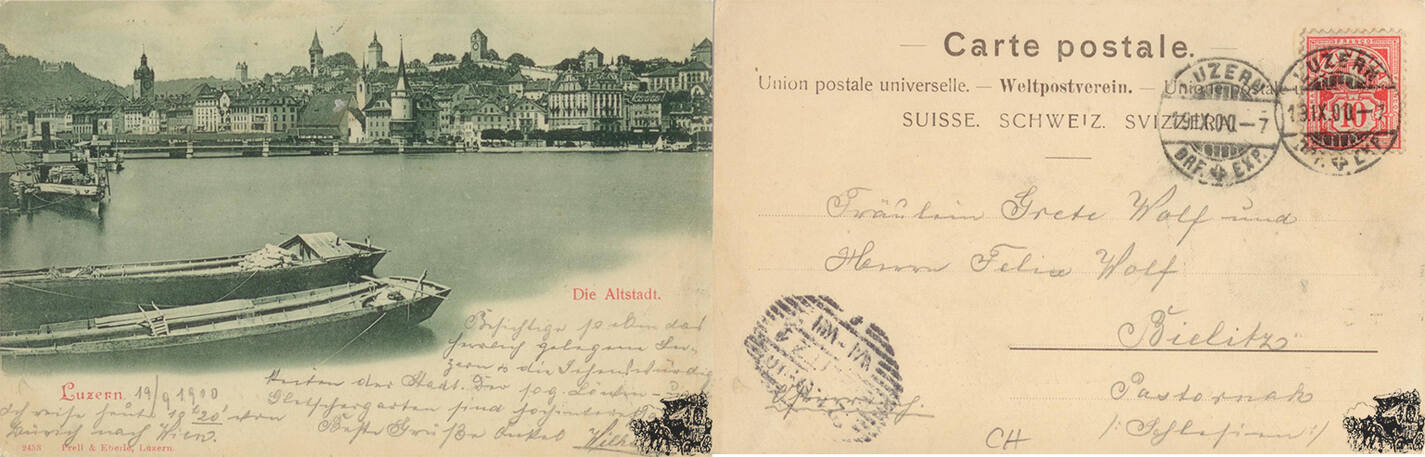 Die Altstadt.
Besichtige so eben das
herrlich gelegene Lu-
zern & die Sehenswürdig
keiten der Stadt. Der sog. Löwen- u
Gletschergarten sind hochinteress
Beste Grüße Onkel Wilh
Luzern. 19/9 1900
Ich reise heute 10 20' von
Zürich nach Wien.
2453 Prell & Eberle, Luzern.
Carte postale.
Union postale universelle. — Weltpostverein. — Unione postale u
SUISSE. SCHWEIZ. SVIZZERA.
FRANCO
10
LUZERN
19.IX.00.–7
BRF. EXP.
LUZERN
19.IX.00.–7
BRF. EXP.
Fräulein Grete Wolf und
Herrn Felix Wolf
Bielitz
Pastornak
/: Schlesien :/
Österreich.
CH